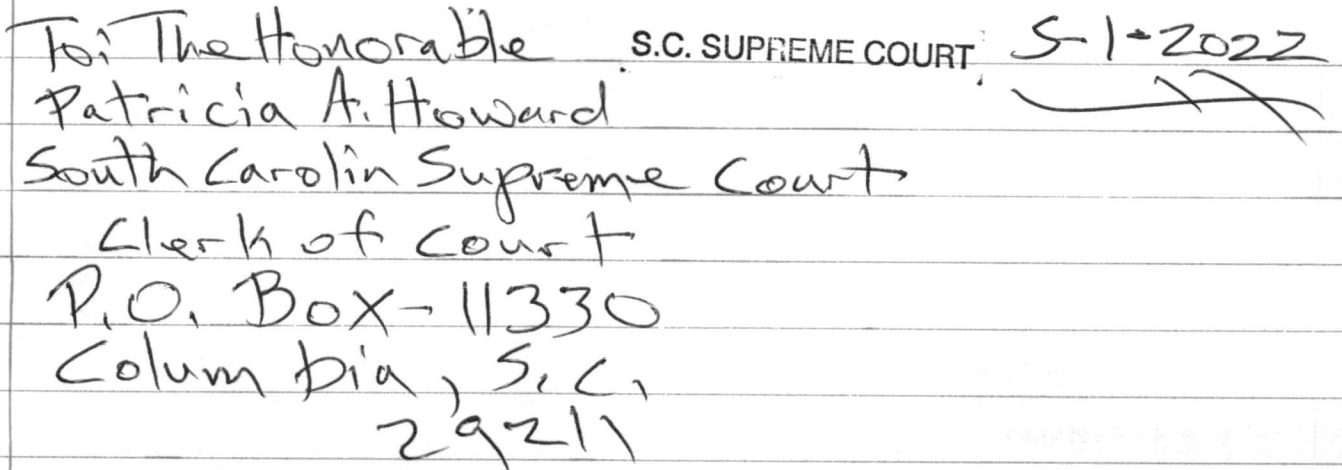 To: The Honorable S.C. SUPREME COURT 5-1-2022
Patricia A. Howard
South Carolin Supreme Court
Clerk of Court
P.O. Box-11330
Columbia, S.C.
29211